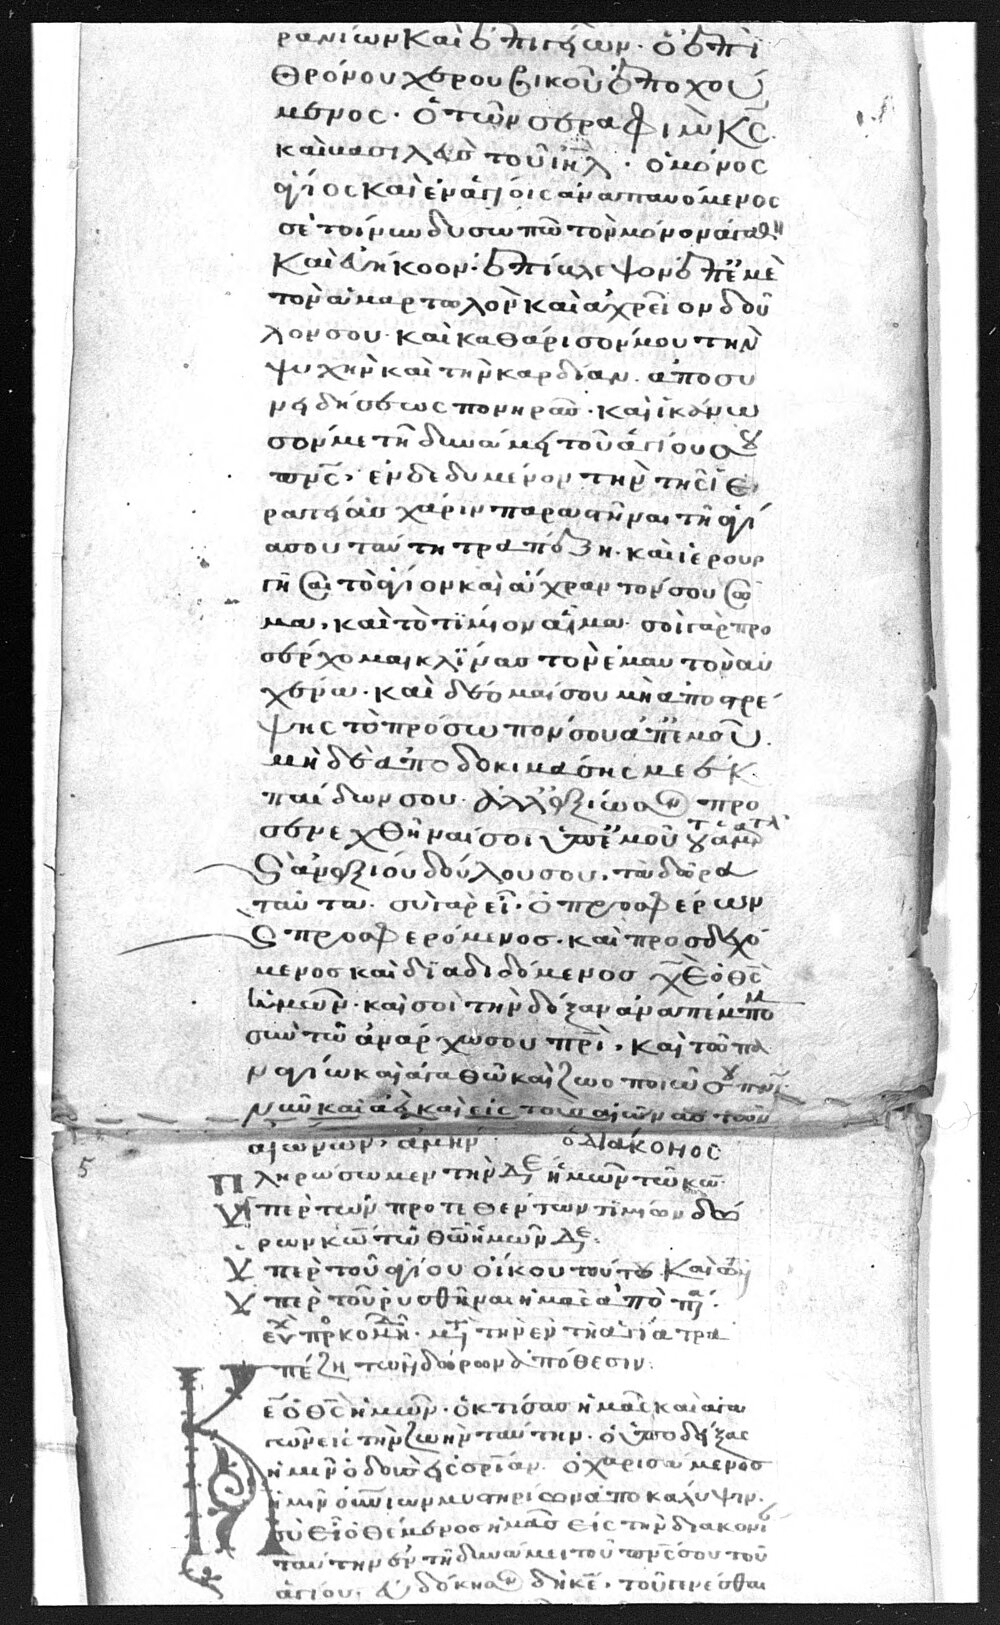 ρανίων καὶ ἐπιγείων· ὁ ἐπὶ
θρόνου χερουβικοῦ ἐποχού
μενος· ὁ τῶν σεραφὶμ κ̅ς̅
καὶ βασιλεὺς τοῦ ιη̅λ· ὁ μόνος
ἅγιος καὶ ἐν ἁγίοις ἀναπαυόμενος
σὲ τοίνυν δυσωπῶ τὸν μόνον ἀγαθὸν
καὶ εὐήκοον· ἐπίβλεψον ἐπ' ἐμὲ
τὸν ἁμαρτωλὸν καὶ ἀχρεῖον δοῦ
λον σου· καὶ καθάρισόν μου τὴν
ψυχὴν καὶ τὴν καρδίαν ἀπὸ συ
νειδήσεως πονηρᾶς· καὶ ἱκάνω
σόν με τῇ δυνάμει τοῦ ἁγίου σου
πν̅ς̅, ἐνδεδυμένον τὴν τῆς ἱε
ρατείας χάριν παραστῆναι τῇ ἁγί
α σου ταύτῃ τραπέζῃ· καὶ ἱερουρ
γῆσαι τὸ ἅγιον καὶ ἄχραντόν σου σῶ
μα, καὶ τὸ τίμιον αἷμα· σοὶ γὰρ προ
σέρχομαι κλίνας τὸν ἐμαυτοῦ αὐ
χένα· καὶ δέομαί σου μὴ ἀποστρέ
ψῃς τὸ πρόσωπόν σου ἀπ' ἐμοῦ
μηδὲ ἀποδοκιμάσῃς με ἐκ
παίδων σου· ἀλλ' ἀξίωσον προ
σενεχθῆναί σοι ὑπ' ἐμοῦ τοῦ ἁμαρτωλοῦ
καὶ ἀναξίου δούλου σου, τὰ δῶρα
ταῦτα· σὺ γὰρ εἶ ὁ προσφέρων
καὶ προσφερόμενος· καὶ προσδεχό
μενος καὶ διαδιδόμενος χ̅ε̅ ὁ θ̅ς̅
ἡμῶν· καὶ σοὶ τὴν δόξαν ἀναπέμπομεν
σὺν τῷ ἀνάρχῳ σου πρ̅ὶ, καὶ τῷ πα
ναγίῳ καὶ ἀγαθῷ καὶ ζωοποιῷ σου πν̅ι̅
νῦν καὶ ἀεὶ καὶ εἰς τοὺς αἰῶνας τῶν
αἰώνων, ἀμήν· ὁ διάκονος
Πληρώσωμεν τὴν δέ ἡμῶν τῷ κ̅ω̅
Ὑπὲρ τῶν προτεθέντων τιμίων δώ
ρων κ̅ω̅ τῷ θ̅ω̅ ἡμῶν δέ·
Ὑπὲρ τοῦ ἁγίου οἴκου τούτου καὶ τῶν
Ὑπὲρ τοῦ ῥυσθῆναι ἡμᾶς ἀπὸ π·
εὐχ προσκομιδῆς· μτ τὴν ἐν τῇ ἁγίᾳ τρα
πέζῃ τῶν δώρων ἀπόθεσιν:
Κ̅ε̅ ὁ θ̅ς̅ ἡμῶν· ὁ κτίσας ἡμᾶς καὶ ἀγα
γὼν εἰς τὴν ζωὴν ταύτην· ὁ ὑποδείξας
ἡμῖν ὁδοὺς εἰς σρίαν· ὁ χαρισάμενος
ἡμῖν οὐνίων μυστηρίων ἀποκάλυψιν·
σὺ εἶ ὁ θέμενος ἡμᾶς εἰς τὴν διακονί
ταύτην ἐν τῇ δυνάμει τοῦ πν̅ς̅ σου τοῦ
ἁγίου· εὐδόκησον δὴ κ̅ε̅, τοῦ γενέσθαι